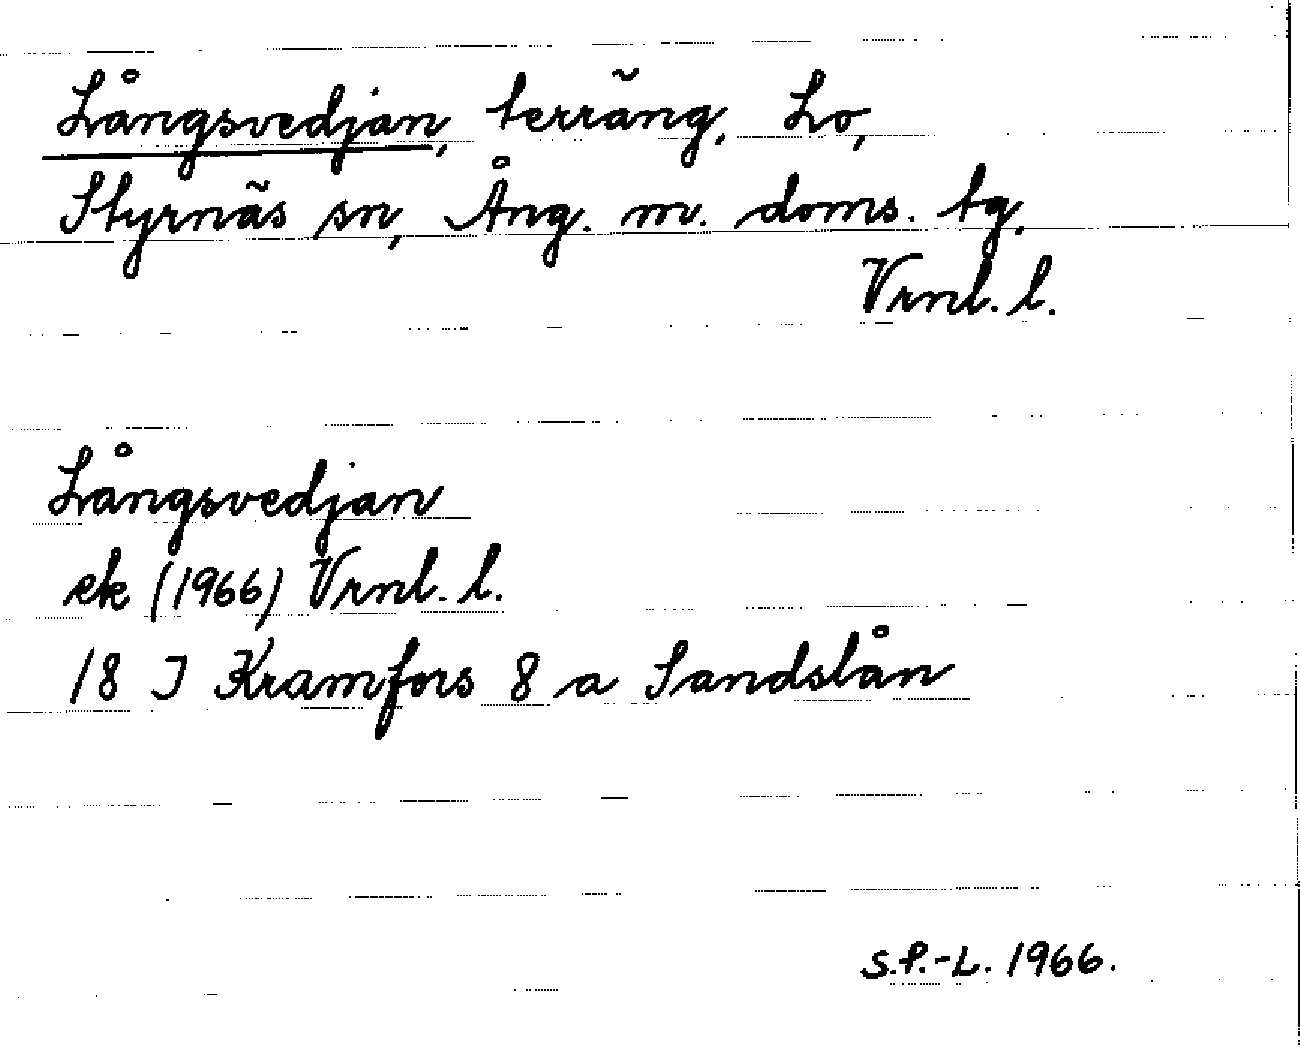 Långsvedjan, terräng, Lo,
Styrnäs sn, Ång. m. doms. tg.
Vrnl. l.
Långsvedjan
ek (1966) Vrnl. l.
18 J Kramfors 8 a Sandslån
S.P.-L. 1966.